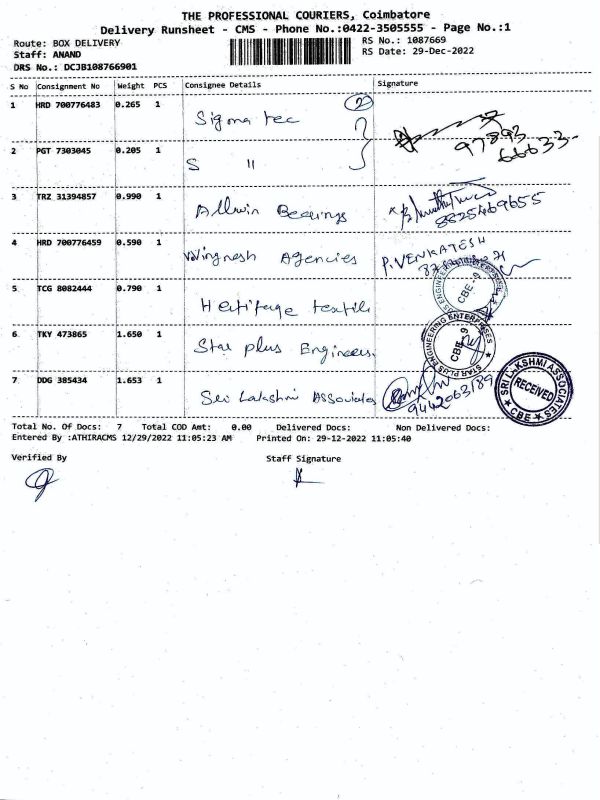 THE PROFESSIONAL COURIERS, Coimbatore
Delivery Runsheet - CMS - Phone No.:0422-3505555 - Page No.:1
Route: BOX DELIVERY RS No.: 1087669
Staff: ANAND RS Date: 29-Dec-2022
DRS No.: DCJB108766901
S No Consignment No Weight PCS Consignee Details Signature
1 HRD 700776483 0.265 1 Sigma tec 2
97893
66633
2 PGT 7303045 0.205 1 S "
3 TRZ 31394857 0.990 1 Allwin Bearings
8825469655
4 HRD 700776459 0.590 1 Agencies P. VENKATESH
5 TCG 8082444 0.790 1 Heritage textile CBE-9
6 TKY 473865 1.650 1 Star plus Engineers. STAR PLUS ENGINEERING ENTERPRISES CBE-9
7 DDG 385434 1.653 1 Sri Lakshmi Associates 9442063189 SRI LAKSHMI ASSOCIATES RECEIVED CBE
Total No. Of Docs: 7 Total COD Amt: 0.00 Delivered Docs: Non Delivered Docs:
Entered By :ATHIRACMS 12/29/2022 11:05:23 AM Printed On: 29-12-2022 11:05:40
Verified By Staff Signature